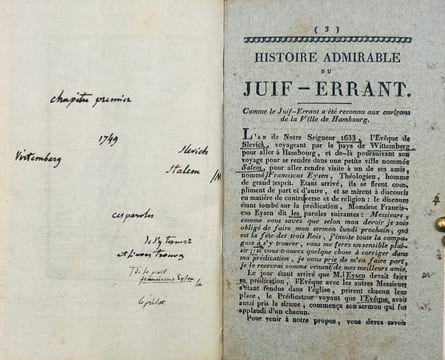 chapitre premier
1749
Virtemberg
Slevich
Stalem
ces paroles
de s'y trouver
( 3 )
HISTOIRE ADMIRABLE
DU
JUIF-ERRANT.
Comme le Juif-Errant a été reconnu aux environs
de la Ville de Hambourg.
L'AN de Notre Seigneur 1633, l'Evêque de
Slevick, voyageant par le pays de Wittemberg
pour aller à Hambourg, et de-là poursuivant son
voyage pour se rendre dans une petite ville nommée
Salem, pour aller rendre visite à un de ses amis,
nommé Franciscus Eysen, Théologien, homme
de grand esprit. Etant arrivé, ils se firent compli-
ment de part et d'autre, et se mirent à discourir
en matière de controverse et de religion : le discours
étant tombé sur la prédication, Monsieur Francis-
cus Eysen dit les paroles suivantes : Messieurs,
comme vous savez que selon mon devoir je suis
obligé de faire mon sermon lundi prochain, qui
est la fête des trois Rois, j'invite toute la compa-
gnie à s'y trouver, vous me ferez un sensible plai-
sir ; si vous trouvez quelque chose à corriger dans
ma prédication, je vous prie de m'en faire part,
je le recevrai comme venant de mes meilleurs amis.
Le jour étant arrivé que M. Eysen devait faire
sa prédication, l'Evêque avec les autres Messieurs
s'étant rendus dans l'église, prirent chacun leur
place, le Prédicateur voyant que l'Evêque avait
aussi pris la sienne, commença son sermon qui fut
applaudi d'un chacun.
Pour venir à notre propos, vous devez savoir